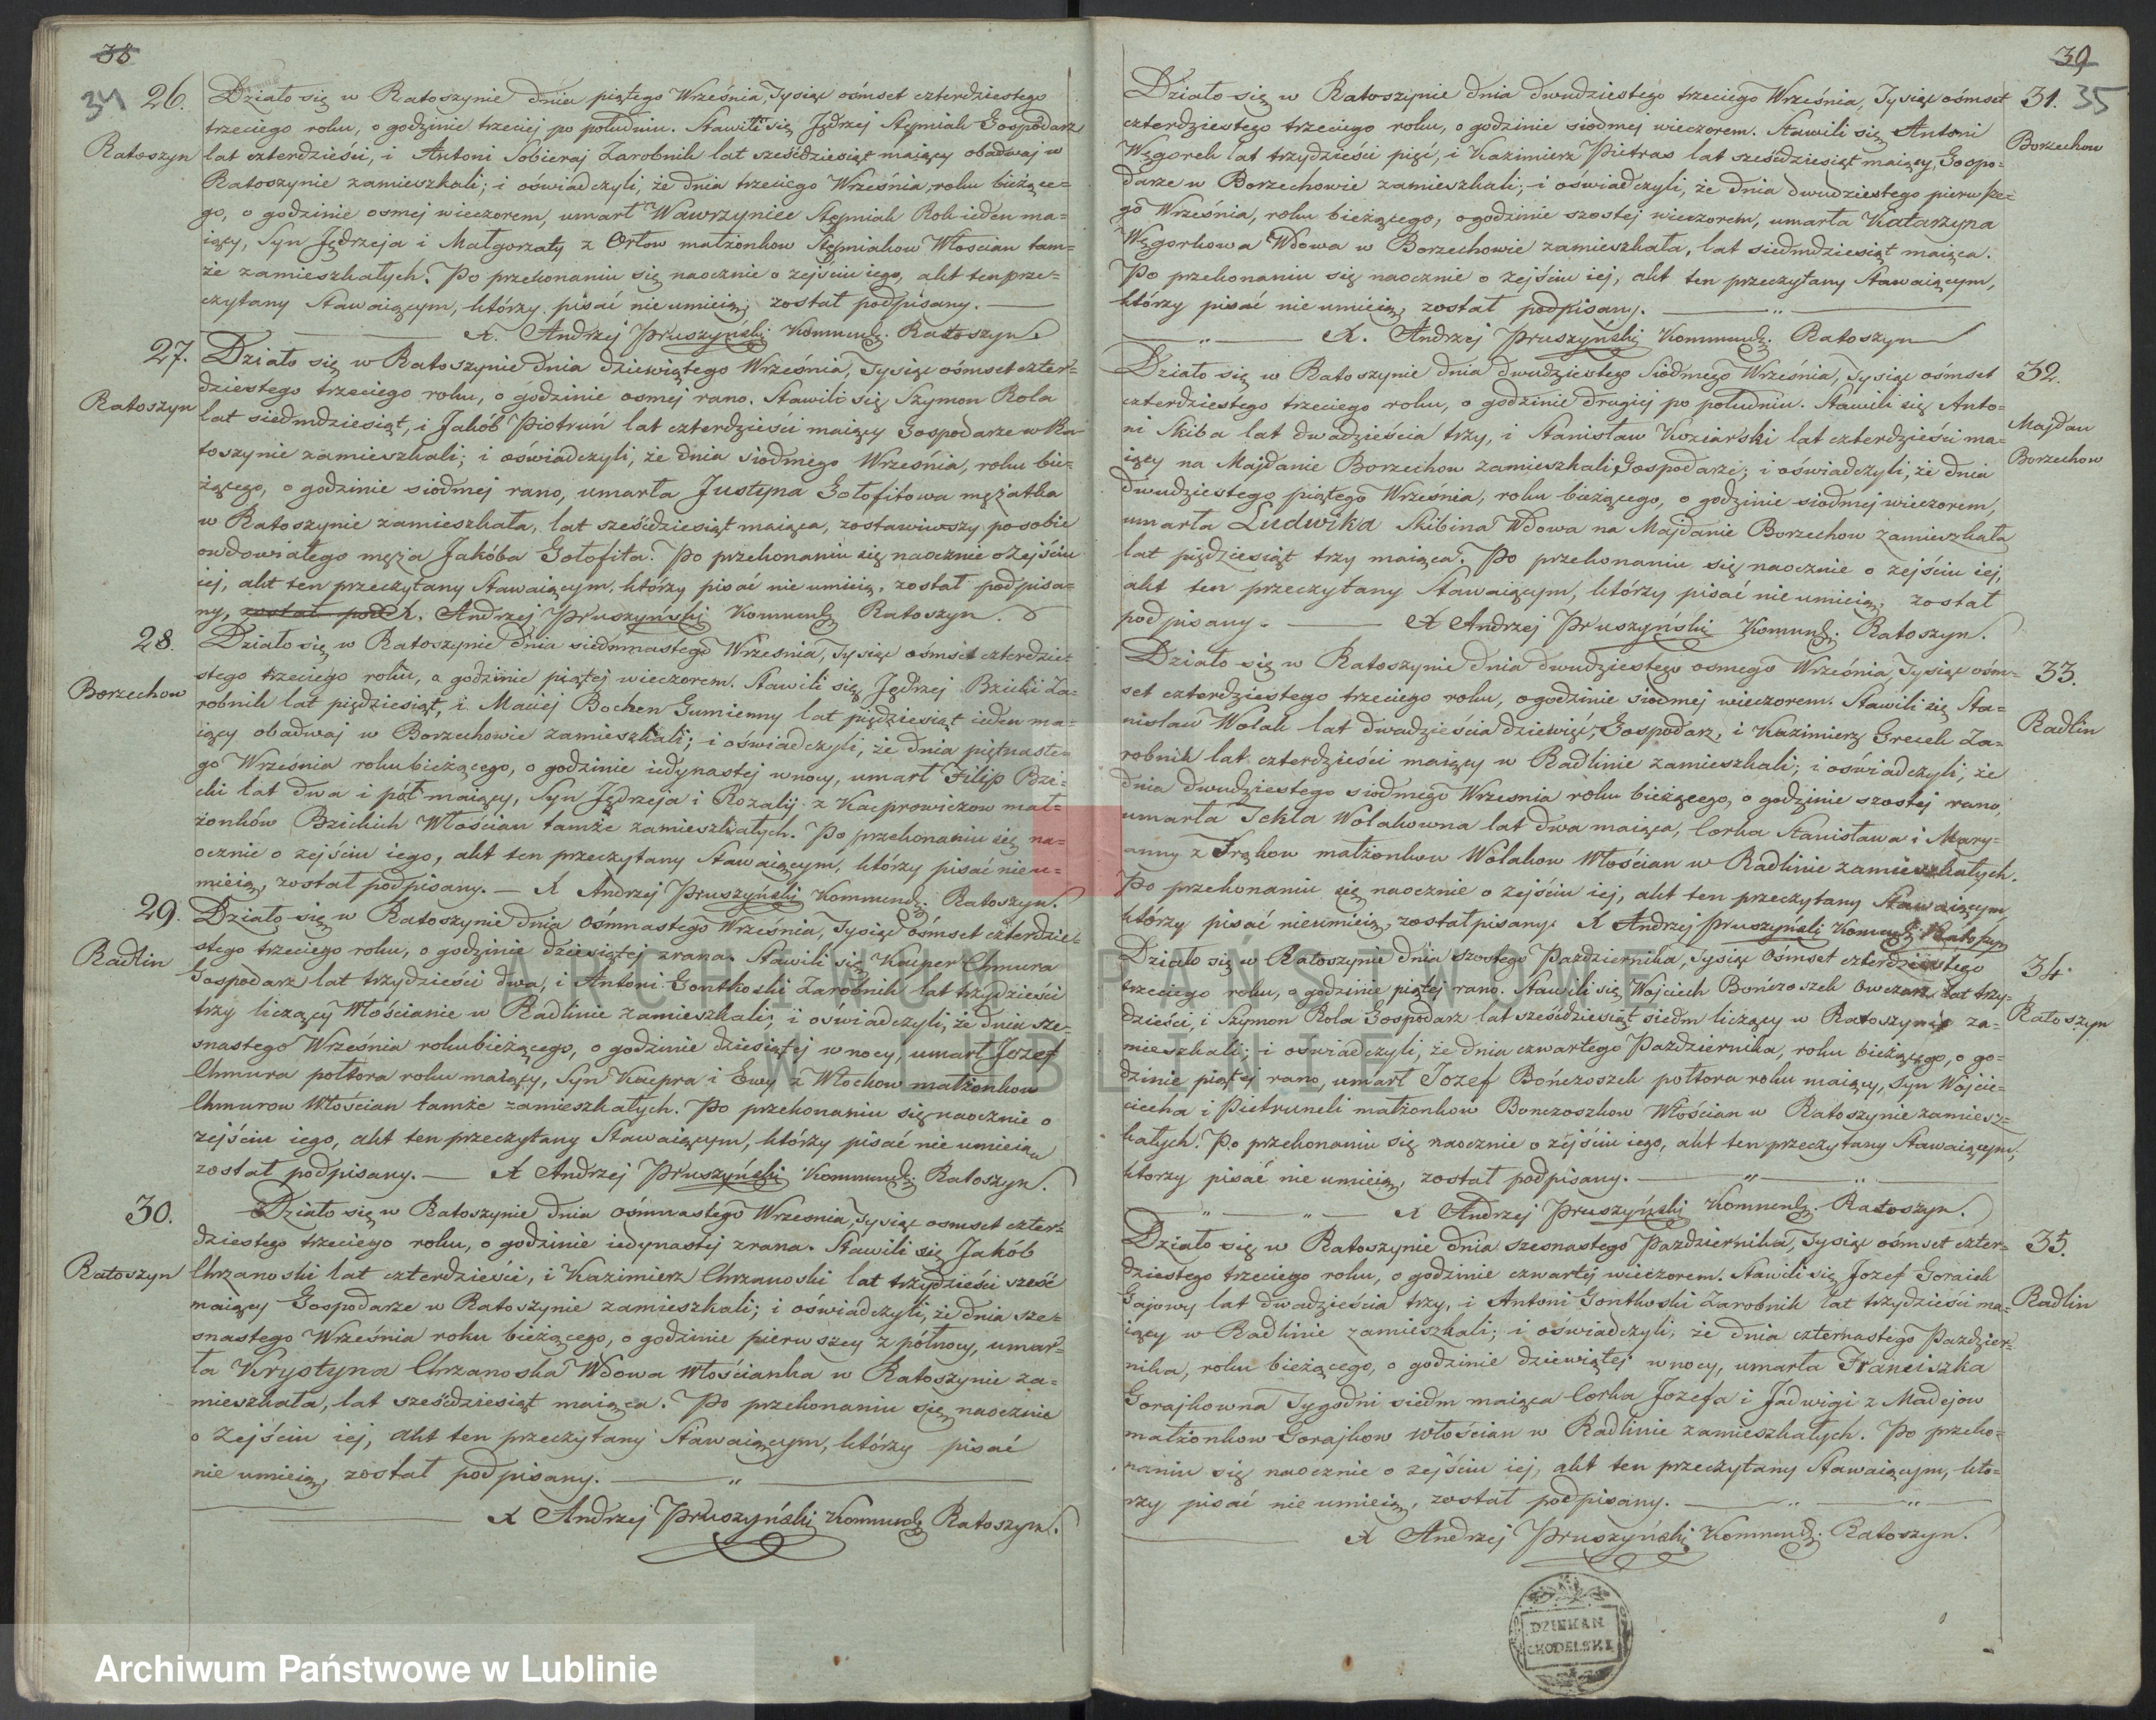 38
34
26.
Ratoszyn
Działo się w Ratoszynie dnia piątego Września, Tysiąc ośmset czterdziestego
trzeciego roku, o godzinie trzeciej po południu. Stawili się Jędrzej Stępniak Gospodarz
lat czterdzieści, i Antoni Sobieraj Zarobnik lat sześćdziesiąt maiący obadwaj w
Ratoszynie zamieszkali; i oświadczyli, że dnia trzeciego Września, roku bieżące=
go, o godzinie osmej wieczorem, umarł Wawrzyniec Stępniak Rok ieden ma=
iący, Syn Jędrzeja i Małgorzaty z Orłow małżonkow Stępniakow Włoscian tam=
że zamieszkałych. Po przekonaniu się naocznie o zejściu iego, akt ten prze=
czytany Stawaiącym, którzy pisać nie umieią, został podpisany.
X. Andrzej Pruszyński Kommend. Ratoszyn.
27.
Ratoszyn
Działo się w Ratoszynie dnia dziewiątego Września, Tysiąc ośmset czter=
dziestego trzeciego roku, o godzinie osmej rano. Stawili się Szymon Rola
lat siedmdziesiąt, i Jakób Piotruń lat czterdzieści maiący Gospodarze w Ra=
toszynie zamieszkali; i oświadczyli, że dnia siodmego Września, roku bie=
żącego, o godzinie siodmej rano, umarła Justyna Gołofitowa mężatka
w Ratoszynie zamieszkała, lat sześćdziesiąt maiąca, zostawiwszy po sobie
owdowiałego męża Jakóba Gołofita. Po przekonaniu się naocznie o Zejściu
iej, akt ten przeczytany Stawaiącym, którzy pisać nie umieią, został podpisa=
ny, został pod X. Andrzej Pruszyński Kommend. Ratoszyn.
28.
Borzechow
Działo się w Ratoszynie dnia siedmnastego Września, Tysiąc ośmset czterdzie=
stego trzeciego roku, o godzinie piątej wieczorem. Stawili się Jędrzej Bzicki Za=
robnik lat pięćdziesiąt, i Maciej Bochen Gumienny lat pięćdziesiąt ieden ma=
iący obadwaj w Borzechowie zamieszkali; i oświadczyli, że dnia piętnaste=
go Września roku bieżącego, o godzinie iedynastej w nocy, umarł Filip Bzi=
cki lat dwa i pół maiący, Syn Jędrzeja i Rozalij z Kacprowiczow mał=
żonków Bzickich Włościan tamże zamieszkałych. Po przekonaniu się na=
ocznie o zejściu iego, akt ten przeczytany Stawaiącym, którzy pisać nie u=
mieią, został podpisany. X Andrzej Pruszyński Kommend. Ratoszyn.
29.
Radlin
Działo się w Ratoszynie dnia Ośmnastego Września, Tysiąc ośmset czterdzie=
stego trzeciego roku, o godzinie dziesiątej zrana. Stawili się Kacper Chmura
Gospodarz lat trzydzieści dwa, i Antoni Gontkoski Zarobnik lat trzydzieści
trzy liczący Włościanie w Radlinie zamieszkali; i oświadczyli, że dnia sze=
snastego Września roku bieżącego, o godzinie dziesiątej w nocy, umarł Jozef
Chmura półtora roku maiący, Syn Kacpra i Ewy z Włochow małżonkow
Chmurow Włościan tamże zamieszkałych. Po przekonaniu się naocznie o
zejściu iego, akt ten przeczytany Stawaiącym, którzy pisać nie umieią
został podpisany. X Andrzej Pruszyński Kommend. Ratoszyn.
30.
Ratoszyn
Działo się w Ratoszynie dnia ośmnastego Wrzesnia, Tysiąc osmset czter=
dziestego trzeciego roku, o godzinie iedynastej zrana. Stawili się Jakób
Chrzanoski lat czterdzieści, i Kazimierz Chrzanoski lat trzydzieści sześć
maiący Gospodarze w Ratoszynie zamieszkali; i oświadczyli, że dnia sze=
snastego Września roku bieżącego, o godzinie pierwszey z północy, umar=
ła Krystyna Chrzanoska Wdowa Włościanka w Ratoszynie za=
mieszkała, lat sześćdziesiąt maiąca. Po przekonaniu się naocznie
o Zejściu iej, akt ten przeczytany Stawaiącym, którzy pisać
nie umieią, został podpisany.
X Andrzej Pruszyński Kommend. Ratoszyn.
39
35
31.
Borzechow
Działo się w Ratoszynie dnia dwudziestego trzeciego Września, Tysiąc ośmset
czterdziestego trzeciego roku, o godzinie siodmej wieczorem. Stawili się Antoni
Węgorek lat trzydzieści pięć, i Kazimierz Pietras lat sześćdziesiąt maiący, Gospo=
darze w Borzechowie zamieszkali; i oświadczyli, że dnia dwudziestego pierwsze=
go Września, roku bieżącego, o godzinie szostej wieczorem, umarła Katarzyna
Węgorkowa Wdowa w Borzechowie zamieszkała, lat siedmdziesiąt maiąca.
Po przekonaniu się naocznie o zejściu iej, akt ten przeczytany Stawaiącym,
którzy pisać nie umieią, został podpisany.
X. Andrzej Pruszyński Kommend. Ratoszyn
32.
Majdan
Borzechow
Działo się w Ratoszynie dnia dwudziestego Siodmego Września, Tysiąc ośmset
czterdziestego trzeciego roku, o godzinie drugiej po południu. Stawili się Anto=
ni Skiba lat dwadzieścia trzy, i Stanisław Koziarski lat czterdzieści ma=
iący na Majdanie Borzechow zamieszkali Gospodarze; i oświadczyli, że dnia
dwudziestego piątego Września, roku bieżącego, o godzinie siodmej wieczorem,
umarła Ludwika Skibina Wdowa na Majdanie Borzechow zamieszkała
lat pięćdziesiąt trzy maiąca. Po przekonaniu się naocznie o zejściu iej,
akt ten przeczytany Stawaiącym, którzy pisać nie umieią, został
podpisany. X Andrzej Pruszyński Komend. Ratoszyn.
33.
Radlin
Działo się w Ratoszynie dnia dwudziestego osmego Września, Tysiąc ośm=
set czterdziestego trzeciego roku, o godzinie siodmej wieczorem. Stawili się Sta=
nisław Wolak lat dwadzieścia dziewięć, Gospodarz, i Kazimierz Grecek Za=
robnik lat czterdzieści maiący w Radlinie zamieszkali; i oświadczyli, że
dnia dwudziestego siodmego Wrzesnia roku bieżącego, o godzinie szostej rano,
umarła Tekla Wolakowna lat dwa maiąca, Corka Stanisława i Mary=
anny z Frąkow małżonkow Wolakow Włościan w Radlinie zamieszkałych.
Po przekonaniu się naocznie o zejściu iej, akt ten przeczytany Stawaiącym,
którzy pisać nieumieią, został pisany. X Andrzej Pruszyński Komend. Ratoszyn
34.
Ratoszyn
Działo się w Ratoszynie dnia szostego Pazdziernika, Tysiąc Ośmset czterdziestego
trzeciego roku, o godzinie piątej rano. Stawili się Wojciech Bończoszek Owczarz lat trzy=
dzieści, i Szymon Rola Gospodarz lat sześćdziesiąt siedm liczący w Ratoszynie za=
mieszkali; i oświadczyli, że dnia czwartego Pazdziernika, roku bieżącego, o go=
dzinie piątej rano, umarł Jozef Bończoszek półtora roku maiący, Syn Wojcie=
ciecha i Pietruneli małżonkow Bonczoszkow Włościan w Ratoszynie zamiesz=
kałych. Po przekonaniu się naocznie o zejściu iego, akt ten przeczytany Stawaiącym,
ktorzy pisać nie umieią, został podpisany.
X Andrzej Pruszyński Kommend. Ratoszyn.
35.
Radlin
Działo się w Ratoszynie dnia szesnastego Pazdziernika, Tysiąc ośmset czter=
dziestego trzeciego roku, o godzinie czwartej wieczorem. Stawili się Jozef Goraiek
Gajowy lat dwadzieścia trzy, i Antoni Gontkoski Zarobnik lat trzydzieści ma=
iący w Radlinie zamieszkali; i oświadczyli, że dnia czternastego Pazdzier=
nika, roku bieżącego, o godzinie dziewiątej w nocy, umarła Franciszka
Gorajkowna Tygodni siedm maiąca Corka Jozefa i Jadwigi z Madejow
małżonkow Gorajkow włościan w Radlinie zamieszkałych. Po przeko=
naniu się naocznie o zejściu iej, akt ten przeczytany Stawaiącym, któ=
rzy pisać nie umieią, został podpisany.
X Andrzej Pruszyński Kommend. Ratoszyn.
DZIEKAN
CHODELSKI
ARCHIWUM PAŃSTWOWE
W LUBLINIE
Archiwum Państwowe w Lublinie